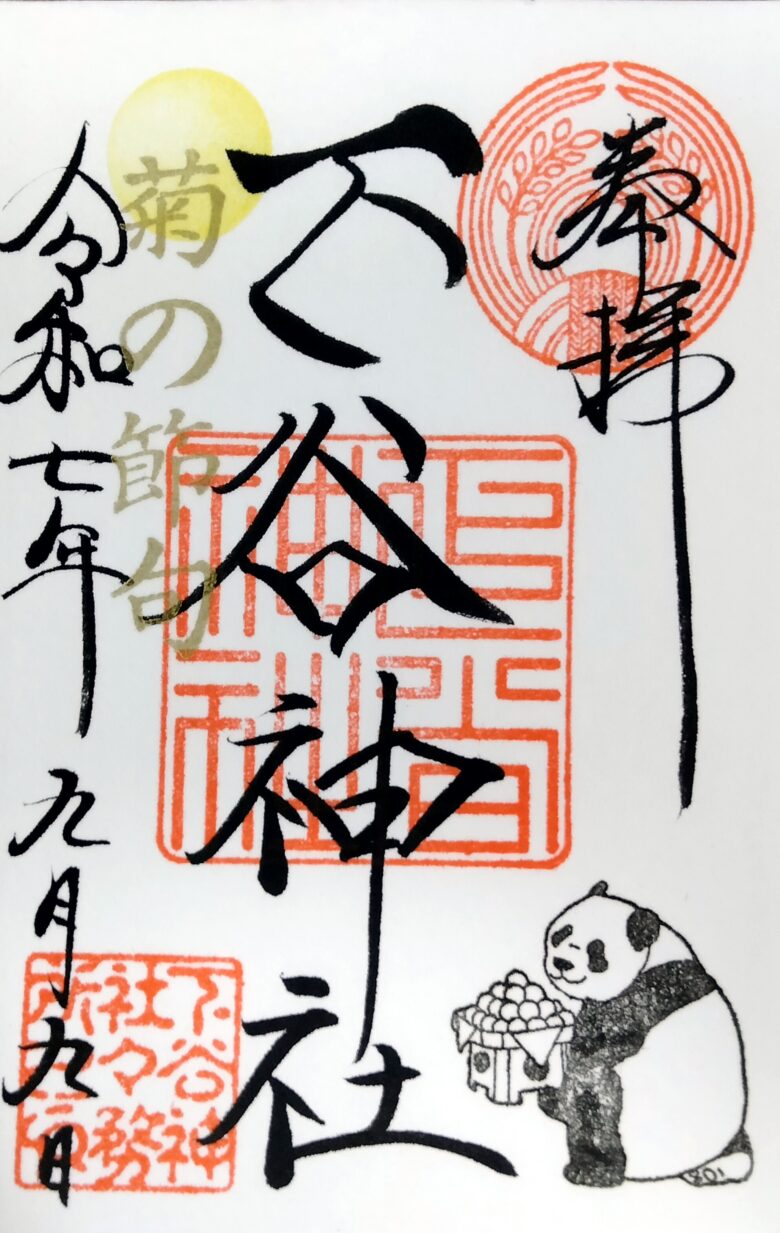 奉拝
下谷神社
菊の節句
令和七年九月九日
下谷神
社々務
所之印